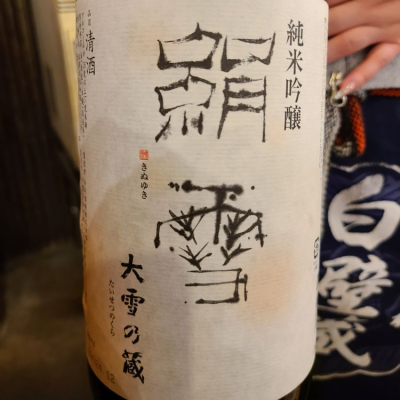 純米吟醸
絹雪
きぬゆき
大雪乃蔵
たいせつのくら
清酒
白壁蔵